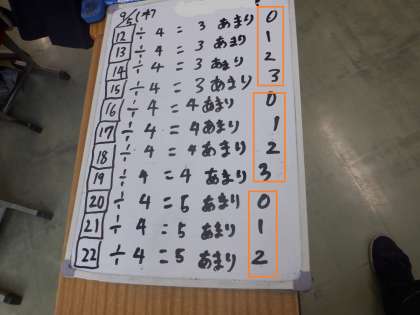 12 ÷ 4 = 3 あまり 0
13 ÷ 4 = 3 あまり 1
14 ÷ 4 = 3 あまり 2
15 ÷ 4 = 3 あまり 3
16 ÷ 4 = 4 あまり 0
17 ÷ 4 = 4 あまり 1
18 ÷ 4 = 4 あまり 2
19 ÷ 4 = 4 あまり 3
20 ÷ 4 = 5 あまり 0
21 ÷ 4 = 5 あまり 1
22 ÷ 4 = 5 あまり 2